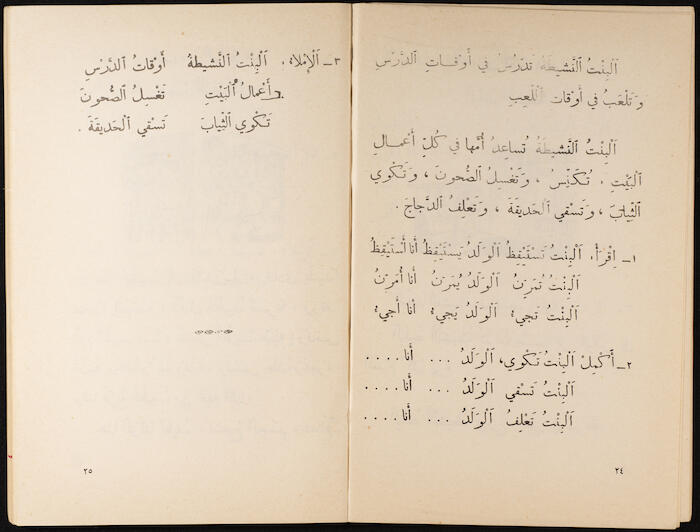 اَلبِنْتُ النَّشيطَةُ تَدْرُسُ في أَوْقاتِ الدَّرْسِ
وَتَلْعَبُ في أَوْقات اللَّعِبِ
اَلْبِنْتُ النَّشيطَةُ تُساعِدُ أُمَّها في كُلِّ أَعْمالِ
البَيْتِ ، تُكَنِّسُ ، وَتَغْسِلُ الصُّحونَ ، وَتَكْوي
الثِّيابَ ، وَتَسْقي الحَديقَةَ ، وَتَعْلِفُ الدَّجاجَ .
١ــ اِقْرَأْ. اَلْبِنْتُ تَسْتَيْقِظُ اَلْوَلَدُ يَسْتَيْقِظُ أَنا أَسْتَيْقِظُ
اَلْبِنْتُ تُمَرِّنُ اَلْوَلَدُ يُمَرِّنُ أنا أُمَرِّنُ
اَلْبِنْتُ تَجيءُ اَلْوَلَدُ يَجيءُ أنا أَجيءُ
٢ــ أَكْمِلْ اَلْبِنْتُ تَكْوي، اَلْوَلَدُ ... أَنا ....
اَلْبِنْتُ تَسْقي اَلْوَلَدُ ... أَنا ....
اَلْبِنْتُ تَعْلِفُ اَلْوَلَدُ ... أَنا ....
٢٤
٣ــ اَلْإِمْلاءُ . اَلْبِنْتُ النَّشيطَةُ أَوْقاتُ الدَّرْسِ
أَعْمالُ اَلْبَيْتِ تَغْسِلُ الصُّحونَ
تَكْوي الثِّيابَ تَسْقي الحَديقَةَ .
٢٥